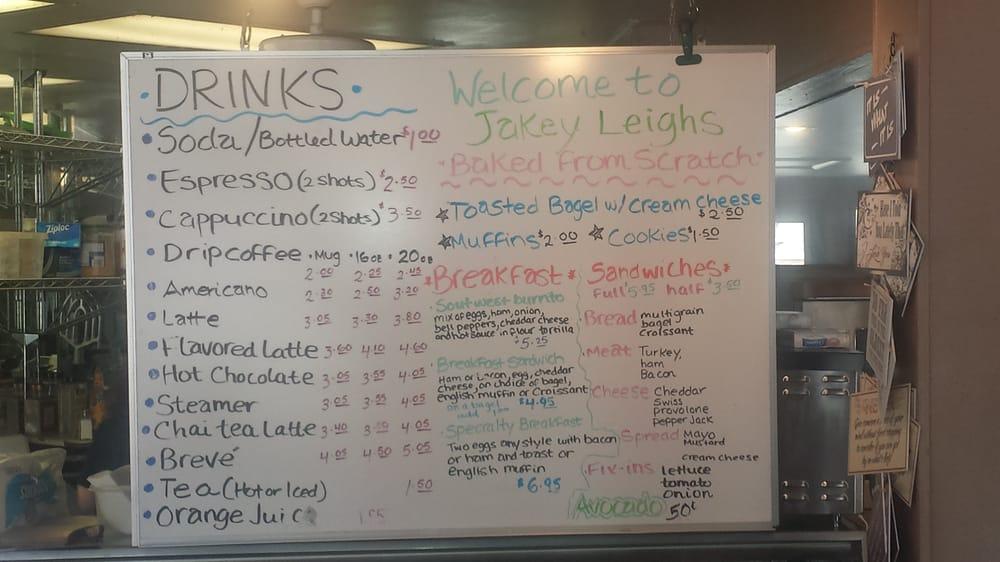 DRINKS
Soda/Bottled Water $1.00
Espresso (2 shots) $2.50
Cappuccino (2 shots) $3.50
Drip coffee • Mug • 16oz • 20oz
2.00 2.25 2.45
Americano 2.20 2.50 3.20
Latte 3.05 3.30 3.80
Flavored Latte 3.60 4.10 4.60
Hot Chocolate 3.05 3.55 4.05
Steamer 3.05 3.55 4.05
Chai tea Latte 3.40 4.05
Brevé 4.05 4.50 5.05
Tea (Hot or Iced) 1.50
Orange Juic
Welcome to
Jakey Leighs
"Baked From Scratch"
Toasted Bagel w/ cream cheese
$2.50
Muffins $2.00 Cookies $1.50
Breakfast
Soutwest burrito
mix of eggs, ham, onion,
bell peppers, cheddar cheese
and hot sauce in flour tortilla
5.25
Breakfast Sandwich
Ham or bacon, egg, cheddar
cheese, on choice of bagel,
english muffin or Croissant
on a bagel $4.95
Specialty Breakfast
Two eggs any style with bacon
or ham and toast or
english muffin
$6.95
Sandwiches
Full $5.95 half $3.50
Bread multigrain
bagel
Croissant
Meat Turkey,
ham
Bacon
Cheese Cheddar
Swiss
provolone
Pepper Jack
Spread Mayo
Mustard
cream cheese
Fix-ins lettuce
tomato
onion
Avocado 50¢
Ziploc
IT IS
WHAT
IT IS